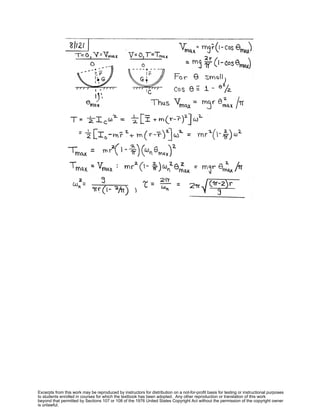 8/121
T=0, V=Vmax
V=0, T=Tmax
O
O
r̄
G
r̄
G
mg
θmax
Vmax = mgr̄(1-cos θmax)
= mg 2r/π (1-cos θmax)
For θ small,
cos θ ≅ 1 - θ²/2
Thus Vmax = mgr θ²max /π
T = ½ I_C ω² = ½ [Ī + m(r-r̄)²] ω²
= ½ [I_o - mr̄² + m(r-r̄)²] ω² = mr²(1-2/π) ω²
Tmax = mr²(1-2/π)(ωn θmax)²
Tmax = Vmax : mr²(1-2/π) ωn² θ²max = mgr θ²max /π
ωn² = g / πr(1-2/π) ; τ = 2π/ωn = 2π √((π-2)r/g)
Excerpts from this work may be reproduced by instructors for distribution on a not-for-profit basis for testing or instructional purposes
to students enrolled in courses for which the textbook has been adopted. Any other reproduction or translation of this work
beyond that permitted by Sections 107 or 108 of the 1976 United States Copyright Act without the permission of the copyright owner
is unlawful.